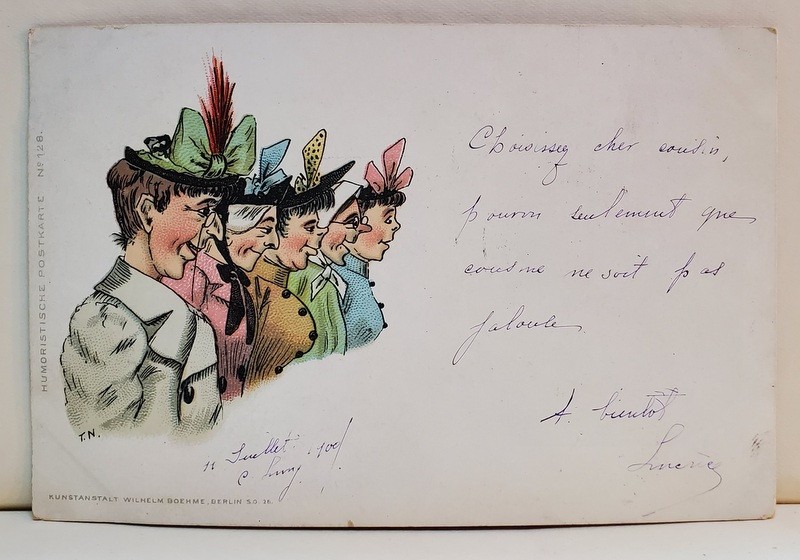 HUMORISTISCHE POSTKARTE Nº 128.
Choisissez cher cousin,
pourvu seulement que
cousine ne soit pas
jalouse
A bientôt
T.N.
11 Juillet
KUNSTANSTALT WILHELM BOEHME, BERLIN S.O. 16.